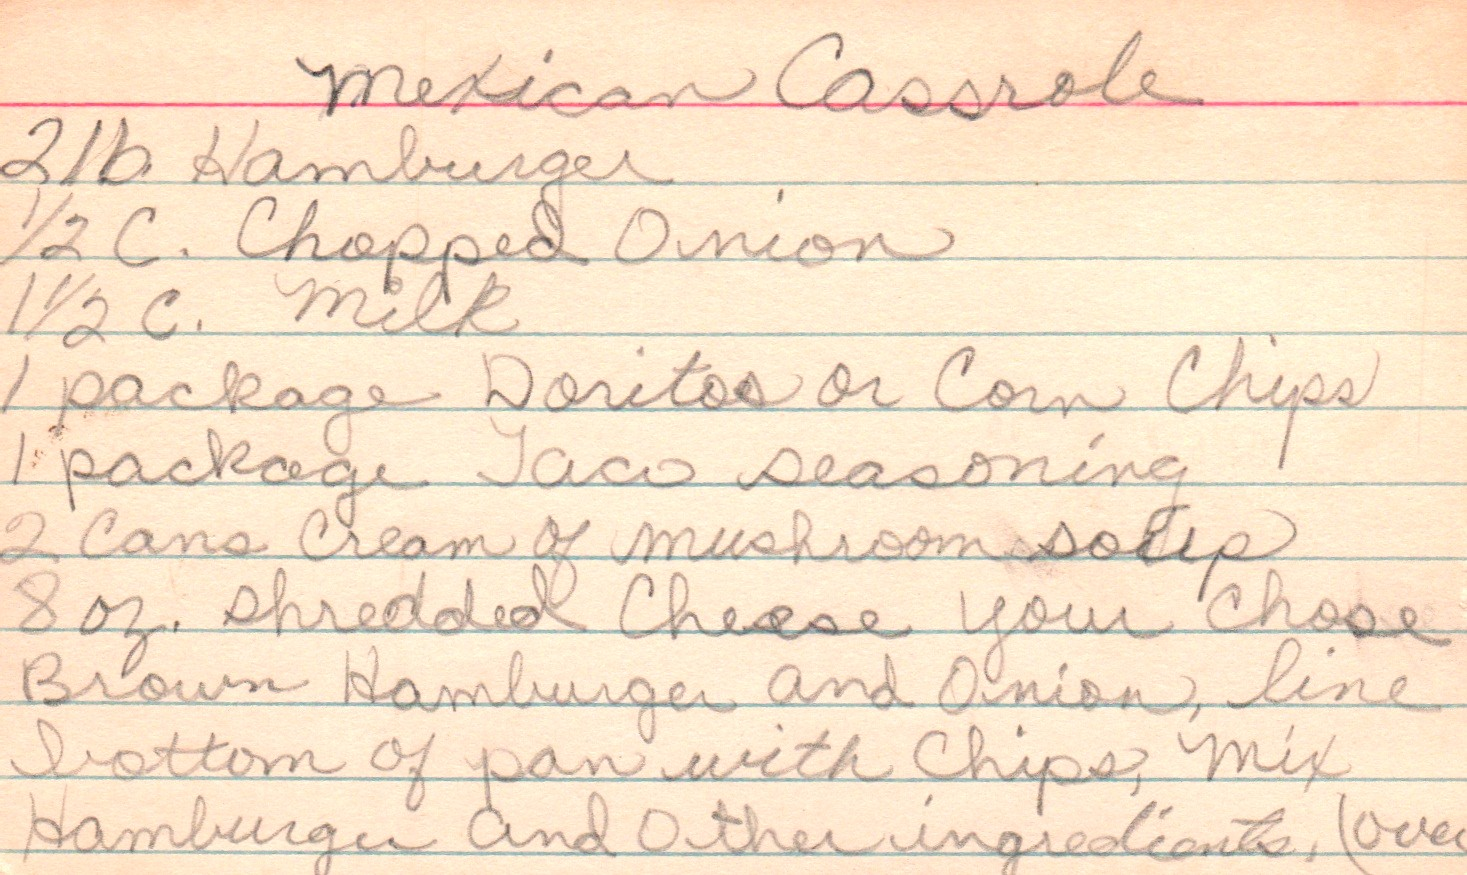 Mexican Cassrole
2 lb. Hamburger
1/2 C. Chopped Onion
1 1/2 C. Milk
1 package Doritos or Corn Chips
1 package Taco seasoning
2 Cans Cream of mushroom soup
8 oz. shredded Cheese your Chose
Brown Hamburger and Onion, line
bottom of pan with Chips, Mix
Hamburger and Other ingredients. (over